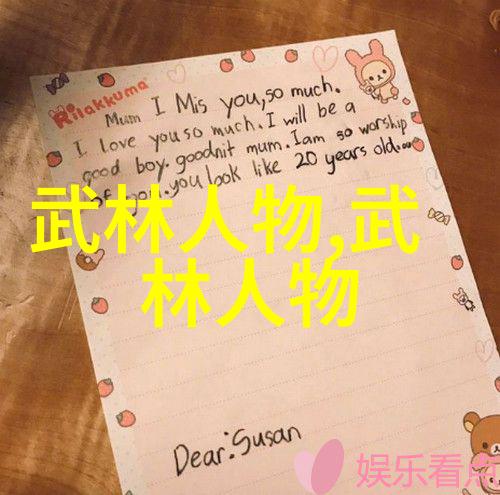 Rilakkuma
Mum I Mis you,so much.
I love you so much.I will be a
good boy.goodnit mum.Iam so worship
of you.you look like 20 years old.
武林人物,武
林人物
Dear:Susan
娱乐看点